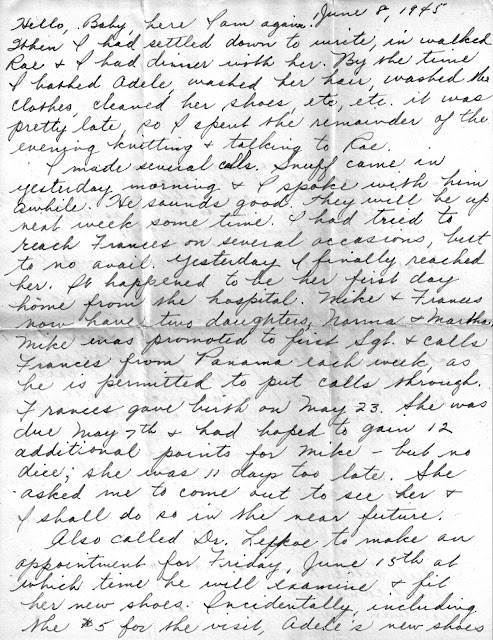 June 8, 1945
Hello, Baby, here I am again.
When I had settled down to write, in walked
Rae & I had dinner with her. By the time
I bathed Adele, washed her hair, washed the
clothes, cleaned her shoes, etc, etc. it was
pretty late, so I spent the remainder of the
evening knitting & talking to Rae.
I made several calls. Snuff came in
yesterday morning & I spoke with him
awhile. He sounds good. They will be up
next week some time. I had tried to
reach Frances on several occasions, but
to no avail. Yesterday I finally reached
her. It happened to be her first day
home from the hospital. Mike & Frances
now have two daughters, Norma & Martha.
Mike was promoted to first Sgt. & calls
Frances from Panama each week, as
he is permitted to put calls through.
Frances gave birth on May 23. She was
due May 7th & had hoped to gain 12
additional points for Mike - but no
dice; she was 11 days too late. She
asked me to come out to see her &
I shall do so in the near future.
Also called Dr. Lefkoe to make an
appointment for Friday, June 15th at
which time he will examine & fit
her new shoes. Incidentally, including
the $5 for the visit, Adele's new shoes